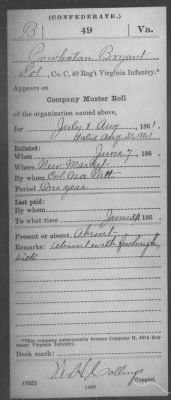 (CONFEDERATE.)
B 49 Va.
Powhatan Bryant
Pvt, Co. C, 49 Reg't Virginia Infantry.*
Appears on
Company Muster Roll
of the organization named above,
for July & Aug, 1861.
dated Aug 31, 1861
Enlisted:
When June 7, 186
Where New Market
By whom Col.
Period One year
Last paid:
By whom
To what time June 30, 186
Present or absent Absent
Remarks: Absent with furlough,
sick
*This company subsequently became Company H, 49th Regiment Virginia Infantry.
Book mark:
(642)
Copyist.